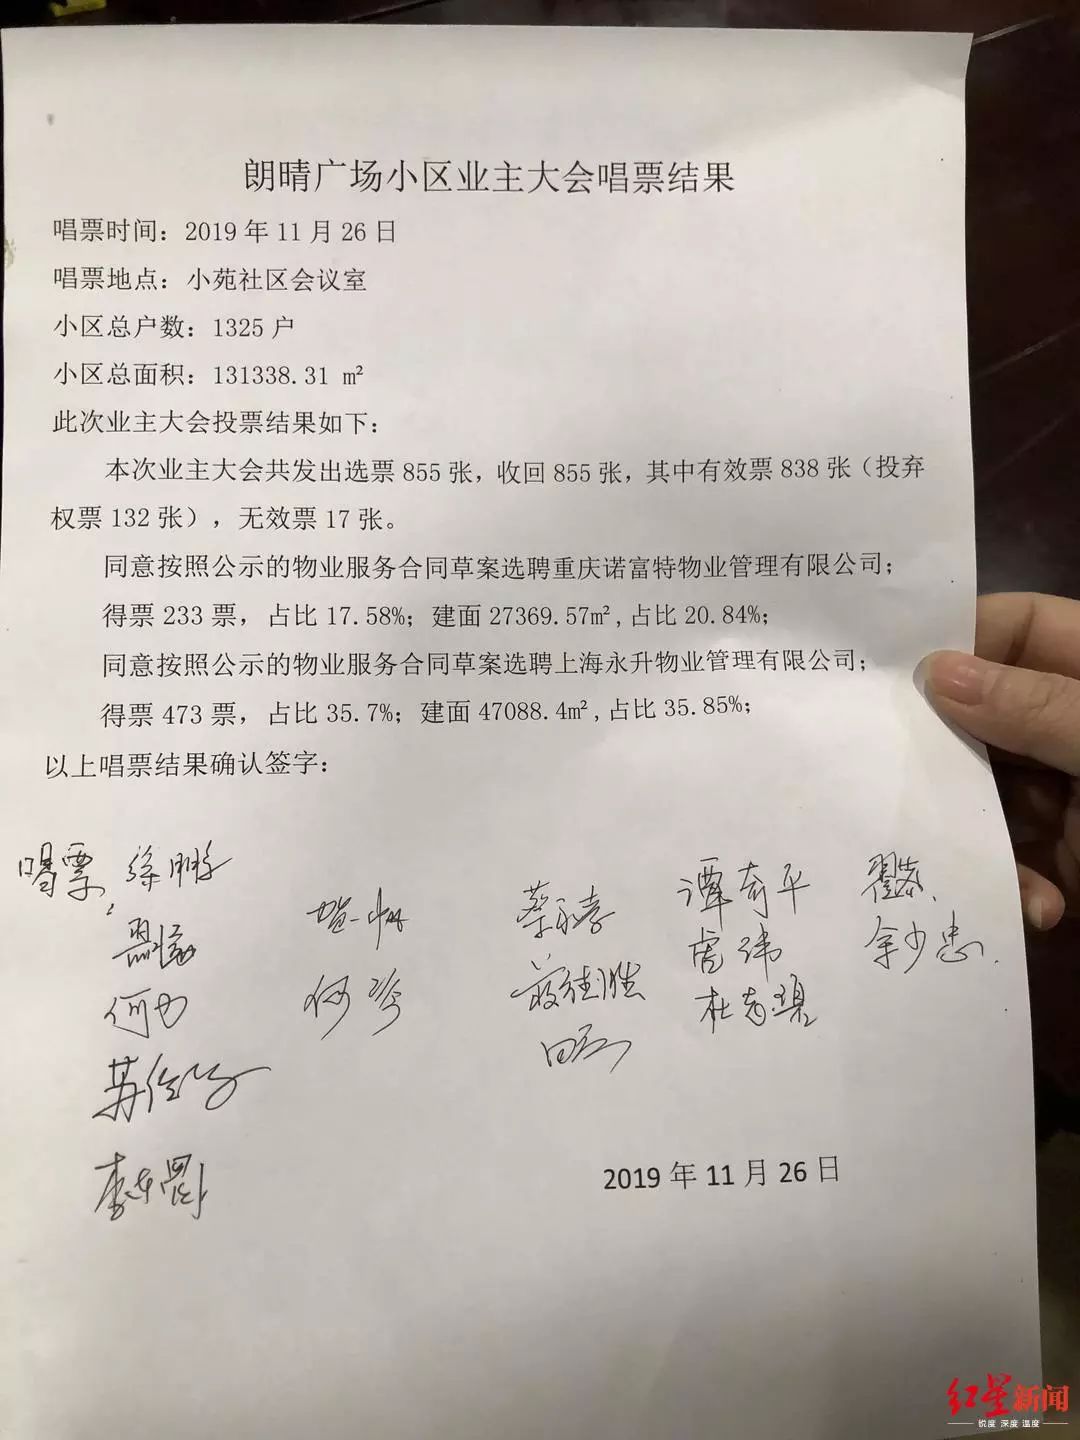 朗晴广场小区业主大会唱票结果
唱票时间：2019 年 11 月 26 日
唱票地点：小苑社区会议室
小区总户数：1325 户
小区总面积：131338.31 ㎡
此次业主大会投票结果如下：
本次业主大会共发出选票 855 张，收回 855 张，其中有效票 838 张（投弃
权票 132 张），无效票 17 张。
同意按照公示的物业服务合同草案选聘重庆诺富特物业管理有限公司；
得票 233 票，占比 17.58%；建面 27369.57㎡,占比 20.84%；
同意按照公示的物业服务合同草案选聘上海永升物业管理有限公司；
得票 473 票，占比 35.7%；建面 47088.4㎡,占比 35.85%；
以上唱票结果确认签字：
唱票
谭奇平
余少忠
何力
2019 年 11 月 26 日
红星新闻
锐度 深度 温度